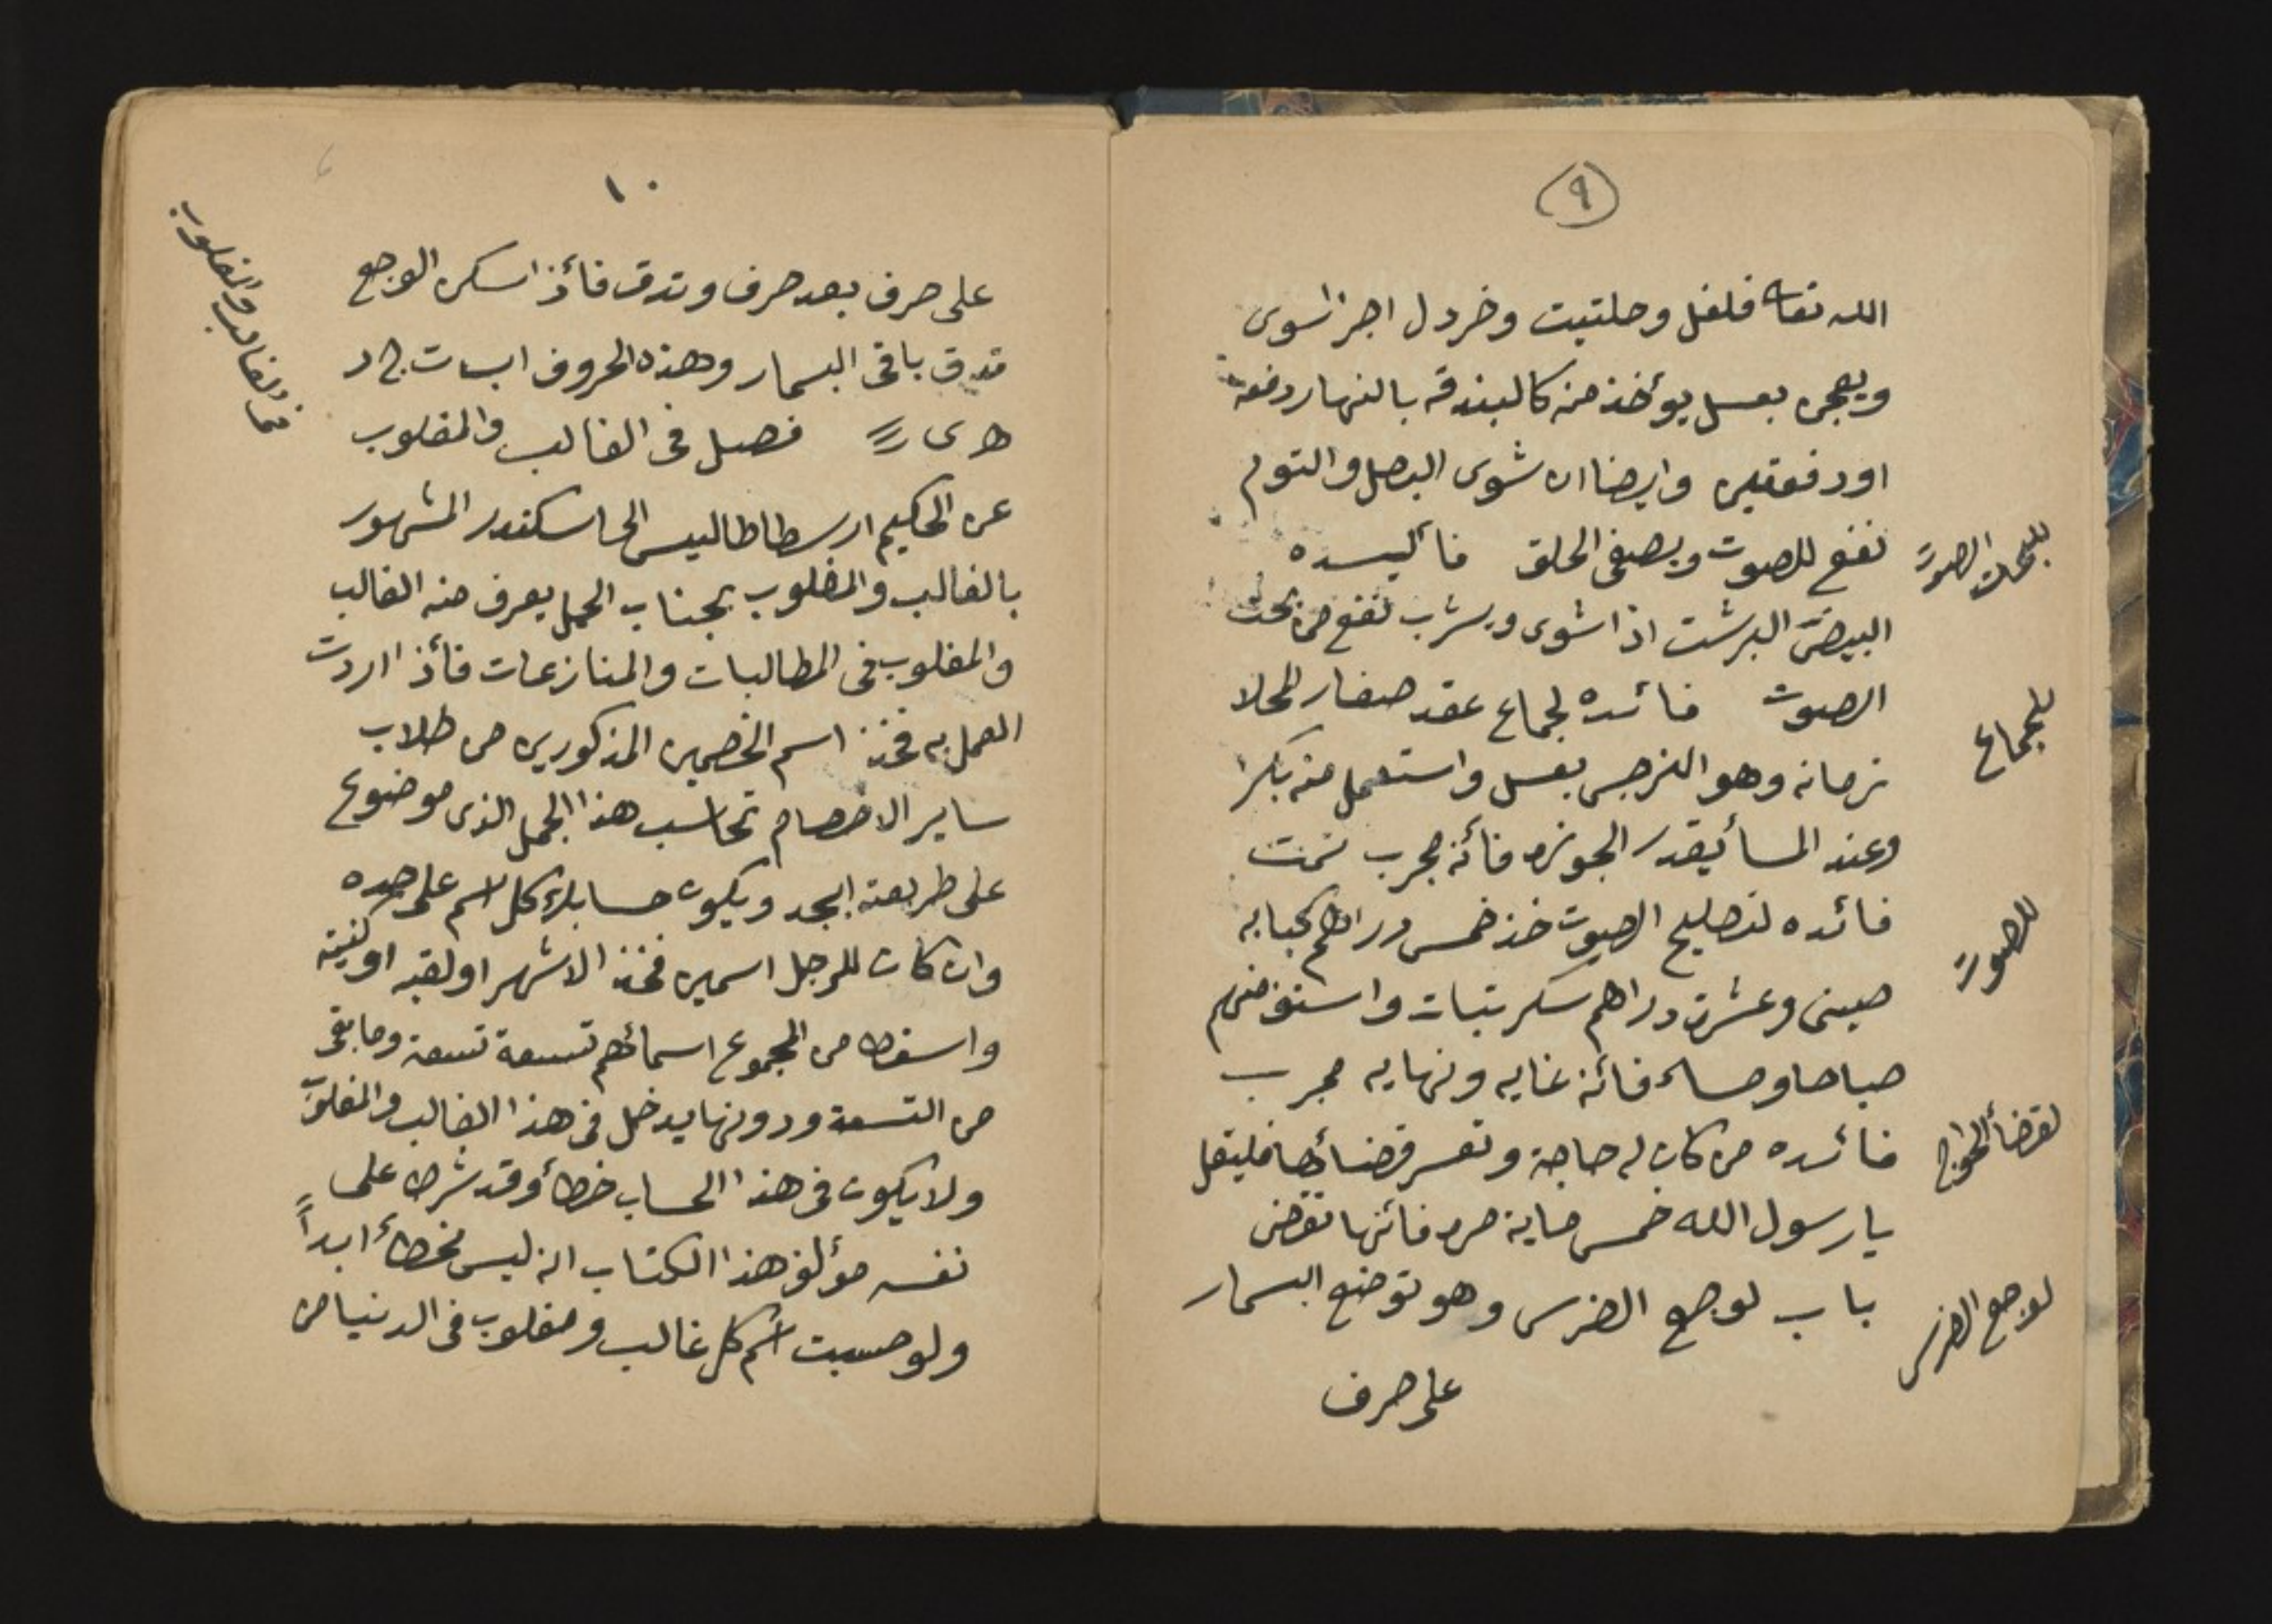 ٩
الله تعا فلفل وحلتيت وخردل اجزا سوى
ويعجن بعسل يوئخذ منه كالبندقه بالنهار دفعه
اودفعتين وايضا ان شوى البصل والتوم
نفع للصوت ويصفى الحلق فائيده
البيض البرشت اذا شوى ويشرب نفع من بحت
الصوت فائده لجماع عقد صغار المحلا
نرمانه وهو النرجس بعسل واستعمل منه بكرا
وعند المسأ بقدر الجوزه فأنه مجرب تمت
فائده لتصليح الصوت خذ خمس دراهم كبابه
صينى وعشرة دراهم سكر بتبات واستوف منهم
صباحا ومساء فائنه غايه ونهايه مجرب
فائده من كان له حاجة وتعسر قضائها فليقل
يا رسول الله خمس ماية مره فائنها تقضى
باب لوجع الضرس وهو توضع البسمار
على حرف
للجماع
للصوت
لقضأ الحوايج
لوجع الضرس
١٠
على حرف بعد حرف وتدق فأذا سكن الوجع
تدق باقى البسمار وهذه الحروف
فصل فى الغالب والمغلوب
عن الحكيم ارسطاطاليس الى اسكندر المشهور
بالغالب والمغلوب بحساب الجمل يعرف منه الغالب
والمغلوب فى المطالبات والمنازعات فأذا اردت
العمل به فخذ اسم الخصمين المذكورين من طلاب
ساير الاخصام تحاسب هذا الجمل الذى موضوع
على طريقة ابجد ويكون حسابك كل اسم على حده
وان كان للرجل اسمين فخذ الاشهر او لقبه او كنيته
واسقط من المجموع اسمائهم تسعة تسعة وما بقى
من التسعة ودونها يدخل فى هذا الغالب والمغلوب
ولا يكون فى هذا الحساب خطأ وقد شرط على
نفسه مؤلف هذا الكتاب انه ليس يخطأ ابداً
ولو حسبت اسم كل غالب ومغلوب فى الدنيا من
فى الغالب والمغلوب